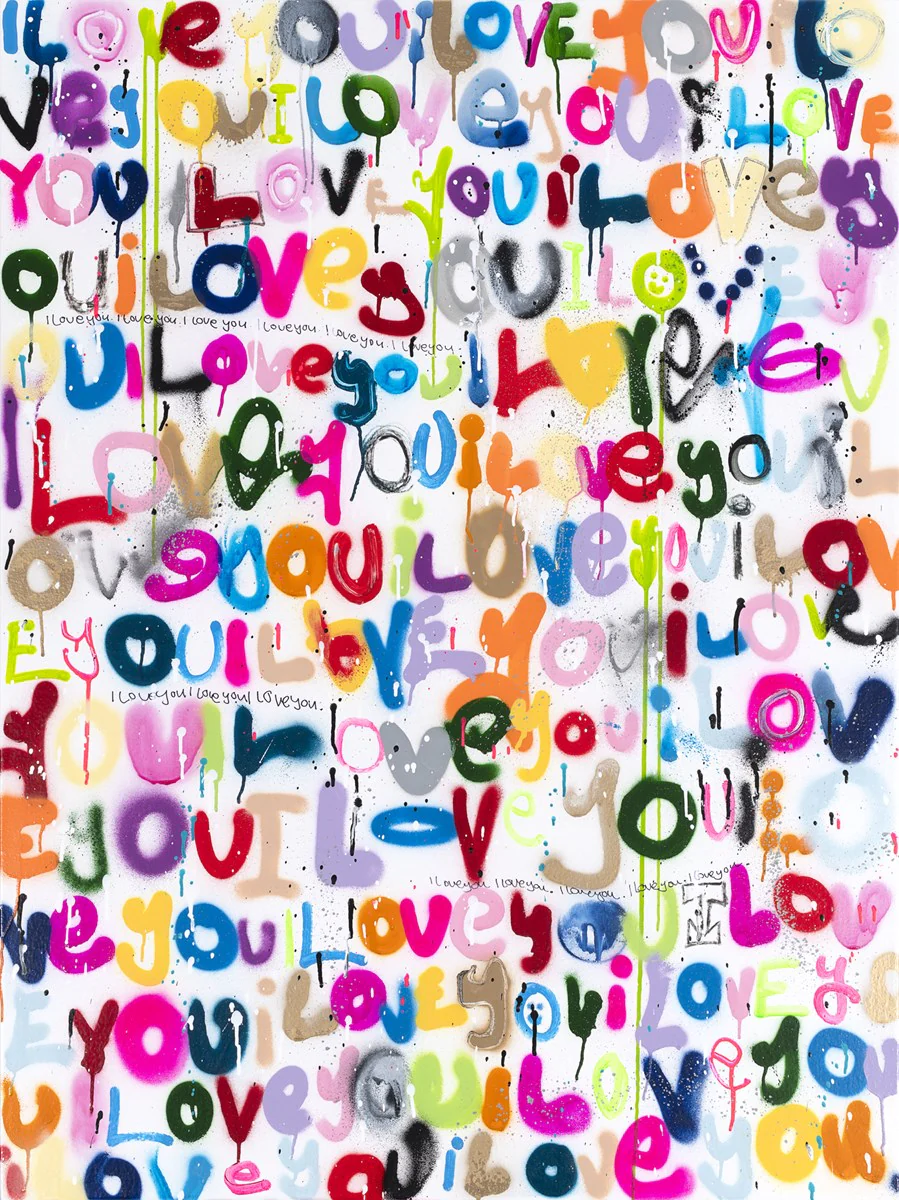 I Love you I LOVE YOU I LO
Vey OU I LOVey OU I LOVE
YOU I LOVE you I LOVey
OU I LOVey OU I LOVEY
I love you. I love you. I love you I love you. I love you. I love you.
OU I Love you I LOVey U
I LOVe you i Love you i L
OVey OU i LOVe you i LOV
EY OU I LOVE YOU i LOve
I love you I love you I love you.
YOU I LOVe you i LOV
Ey OU I LOVe y OU I LO
I love you. I love you. I love you. I love you. I love you
Ve you I LOVe yOU I LOV
E YOU i LOVE you i LOVE yO
U I LOVe yOU I LOVe yOU
i LOVe yoU i Love you